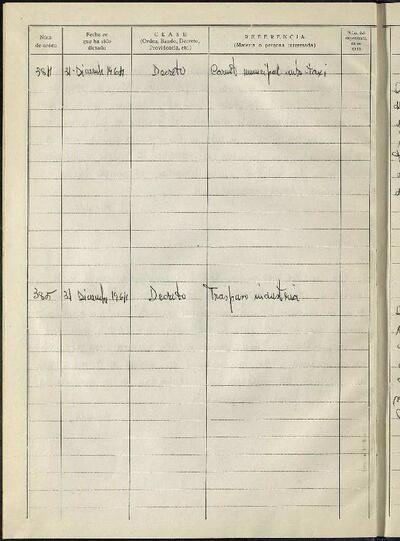 Núm. de orden
Fecha en que ha sido dictado
CLASE
(Orden, Bando, Decreto, Providencia, etc.)
REFERENCIA
(Materia o persona interesada)
384 31-Diciembre 1964 Decreto Carnet municipal auto-taxi
385 31 Diciembre 1964 Decreto Traspaso industria